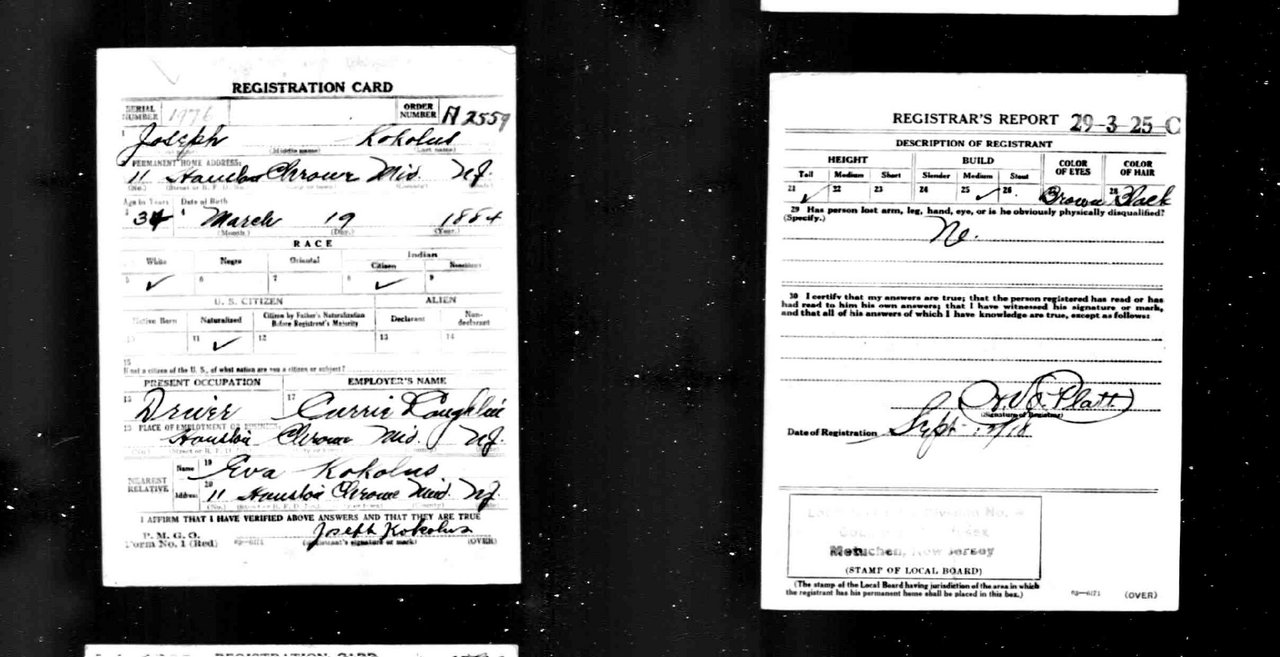 REGISTRATION CARD
SERIAL NUMBER 1976 ORDER NUMBER A 2559
1 Joseph Kokolus
(Middle name) (Last name)
PERMANENT HOME ADDRESS:
11 Houston Chrome Mid. NJ.
(No.)
Age in Years Date of Birth
34 4 March 19 1884
(Month) (Day) (Year)
RACE
White Negro Oriental Indian
Citizen Noncitizen
5 ✓ 6 7 8 ✓ 9
U. S. CITIZEN ALIEN
Native Born Naturalized Citizen by Father's Naturalization Before Registrant's Majority Declarant Non-declarant
10 11 ✓ 12 13 14
15
If not a citizen of the U. S., of what nation are you a citizen or subject?
PRESENT OCCUPATION EMPLOYER'S NAME
16 Driver 17 Currie Loughlin
PLACE OF EMPLOYMENT OR BUSINESS:
Houston Chrome Mid. NJ.
NEAREST RELATIVE
Name 19 Eva Kokolus
Address 20 11 Houston Chrome Mid. NJ.
I AFFIRM THAT I HAVE VERIFIED ABOVE ANSWERS AND THAT THEY ARE TRUE
P. M. G. O.
Form No. 1 (Red) 03—6171 Joseph Kokolus
(Registrant's signature or mark) (OVER)
REGISTRATION CARD
REGISTRAR'S REPORT 29-3-25-C
DESCRIPTION OF REGISTRANT
HEIGHT BUILD COLOR OF EYES COLOR OF HAIR
Tall Medium Short Slender Medium Stout
21 ✓ 22 23 24 25 ✓ 26 Brown 28 Black
29 Has person lost arm, leg, hand, eye, or is he obviously physically disqualified?
(Specify.)
No.
30 I certify that my answers are true; that the person registered has read or has
had read to him his own answers; that I have witnessed his signature or mark,
and that all of his answers of which I have knowledge are true, except as follows:
Platt
(Signature of Registrar)
Date of Registration Sept 12/18
Local Division No. 4
Metuchen, New Jersey
(STAMP OF LOCAL BOARD)
(The stamp of the Local Board having jurisdiction of the area in which
the registrant has his permanent home shall be placed in this box.)
03—6171 (OVER)